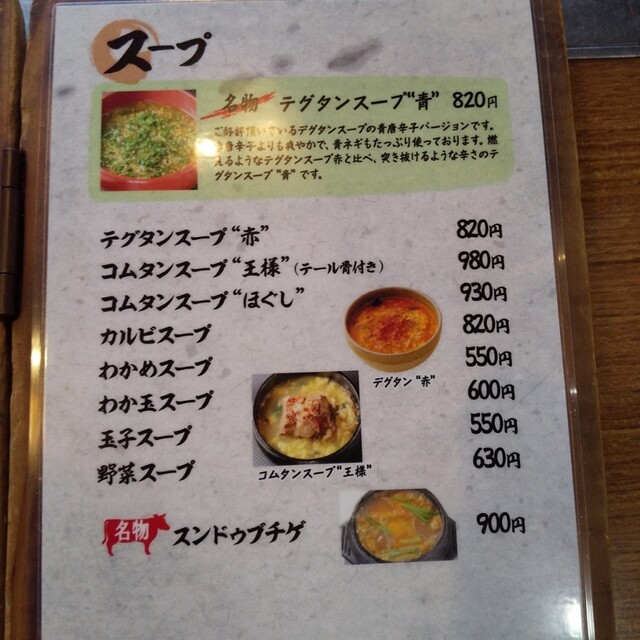 スープ
名物 テグタンスープ“青” 820円
ご好評頂いているテグタンスープの青唐辛子バージョンです。
唐辛子よりも爽やかで、青ネギもたっぷり使っております。燃
えるようなテグタンスープ赤と比べ、突き抜けるような辛さのテ
グタンスープ“青”です。
テグタンスープ“赤” 820円
コムタンスープ“王様”(テール骨付き) 980円
コムタンスープ“ほぐし” 930円
カルビスープ 820円
わかめスープ 550円
わか玉スープ 600円
玉子スープ 550円
野菜スープ 630円
デグタン“赤”
コムタンスープ“王様”
名物 スンドゥブチゲ 900円